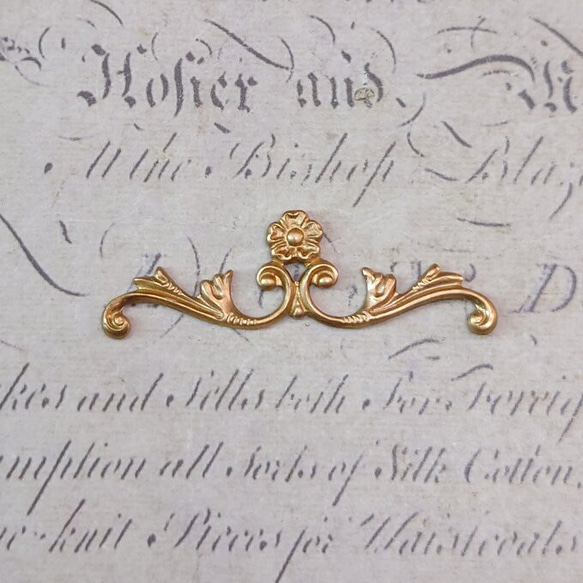 Hosier and
the Bishop Blaz
D
kes and Sells both For Foreig
mption all Sorts of Silk Cotton,
knit Pieces for Waistcoats